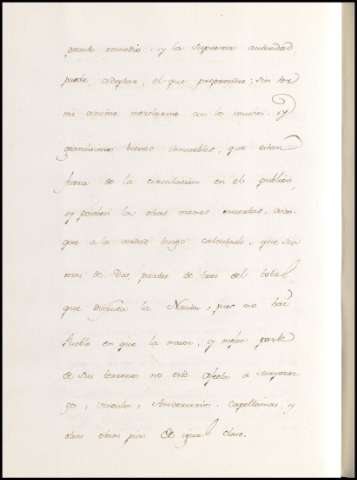 remedio, y la suprema autoridad
puede adoptar, el que propondre, sin ser
mi animo mezclarme en lo
bienes inmuebles, que estan
fuera de la circulacion en el publico,
y poseen las otras manos muertas,
que a la verdad tengo calculado, que son
mas de dos partes de tres del total
que la Nacion, pues no hay
Pueblo en que la maior, y mejor parte
de sus terrenos no esté afecta a mayoraz-
go, vinculo, Aniversarios, Capellanias, y
otras obras pias de igual clase.